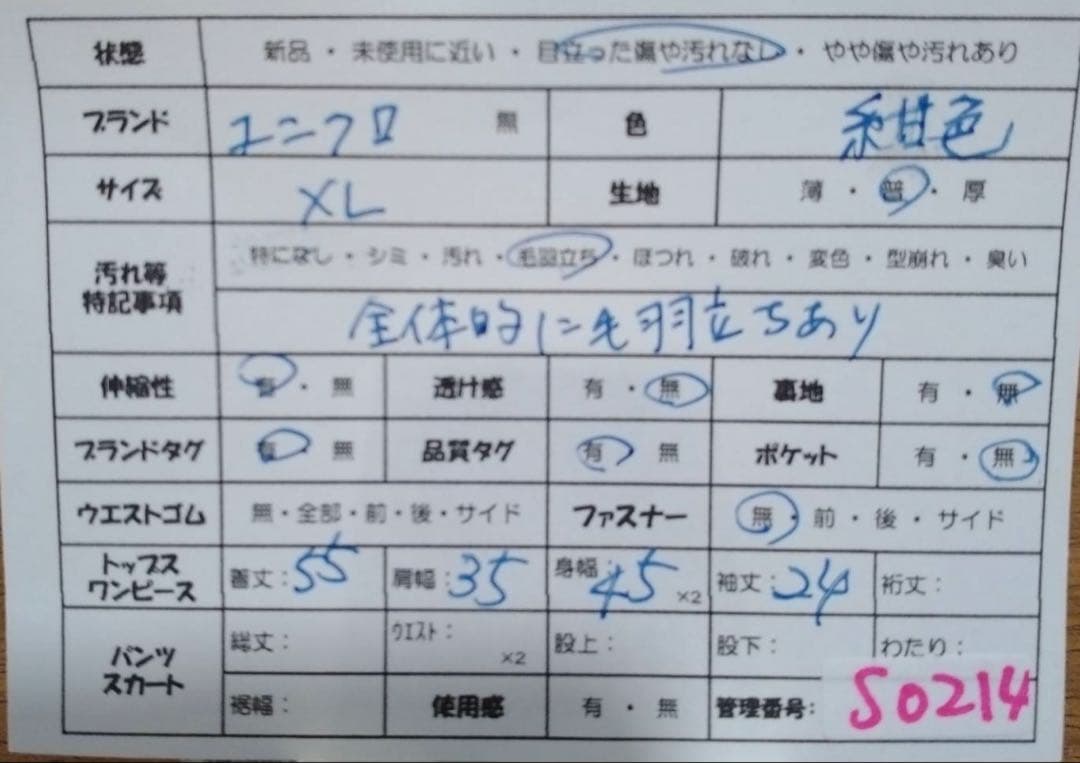 状態 新品・未使用に近い・目立った傷や汚れなし・やや傷や汚れあり
ブランド ユニクロ 無 色 紺色
サイズ XL 生地 薄・普・厚
汚れ等 特記事項 特になし・シミ・汚れ・毛羽立ち・ほつれ・破れ・変色・型崩れ・臭い
全体的に毛羽立ちあり
伸縮性 有・無 透け感 有・無 裏地 有・無
ブランドタグ 有・無 品質タグ 有・無 ポケット 有・無
ウエストゴム 無・全部・前・後・サイド ファスナー 無・前・後・サイド
トップス ワンピース 着丈:55 肩幅:35 身幅:45 ×2 袖丈:24 裄丈:
パンツ スカート 総丈: ウエスト: ×2 股上: 股下: わたり:
裾幅: 使用感 有・無 管理番号: S0214